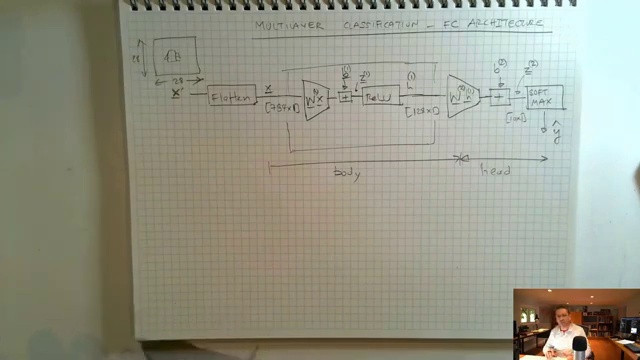 MULTILAYER CLASSIFICATION - FC ARCHITECTURE
28
28
x'
Flatten
x
[784x1]
W⁽¹⁾x
b⁽¹⁾
+
z⁽¹⁾
ReLU
h⁽¹⁾
[128x1]
W⁽²⁾h⁽¹⁾
b⁽²⁾
+
z⁽²⁾
[10x1]
SOFT
MAX
ŷ
body
head